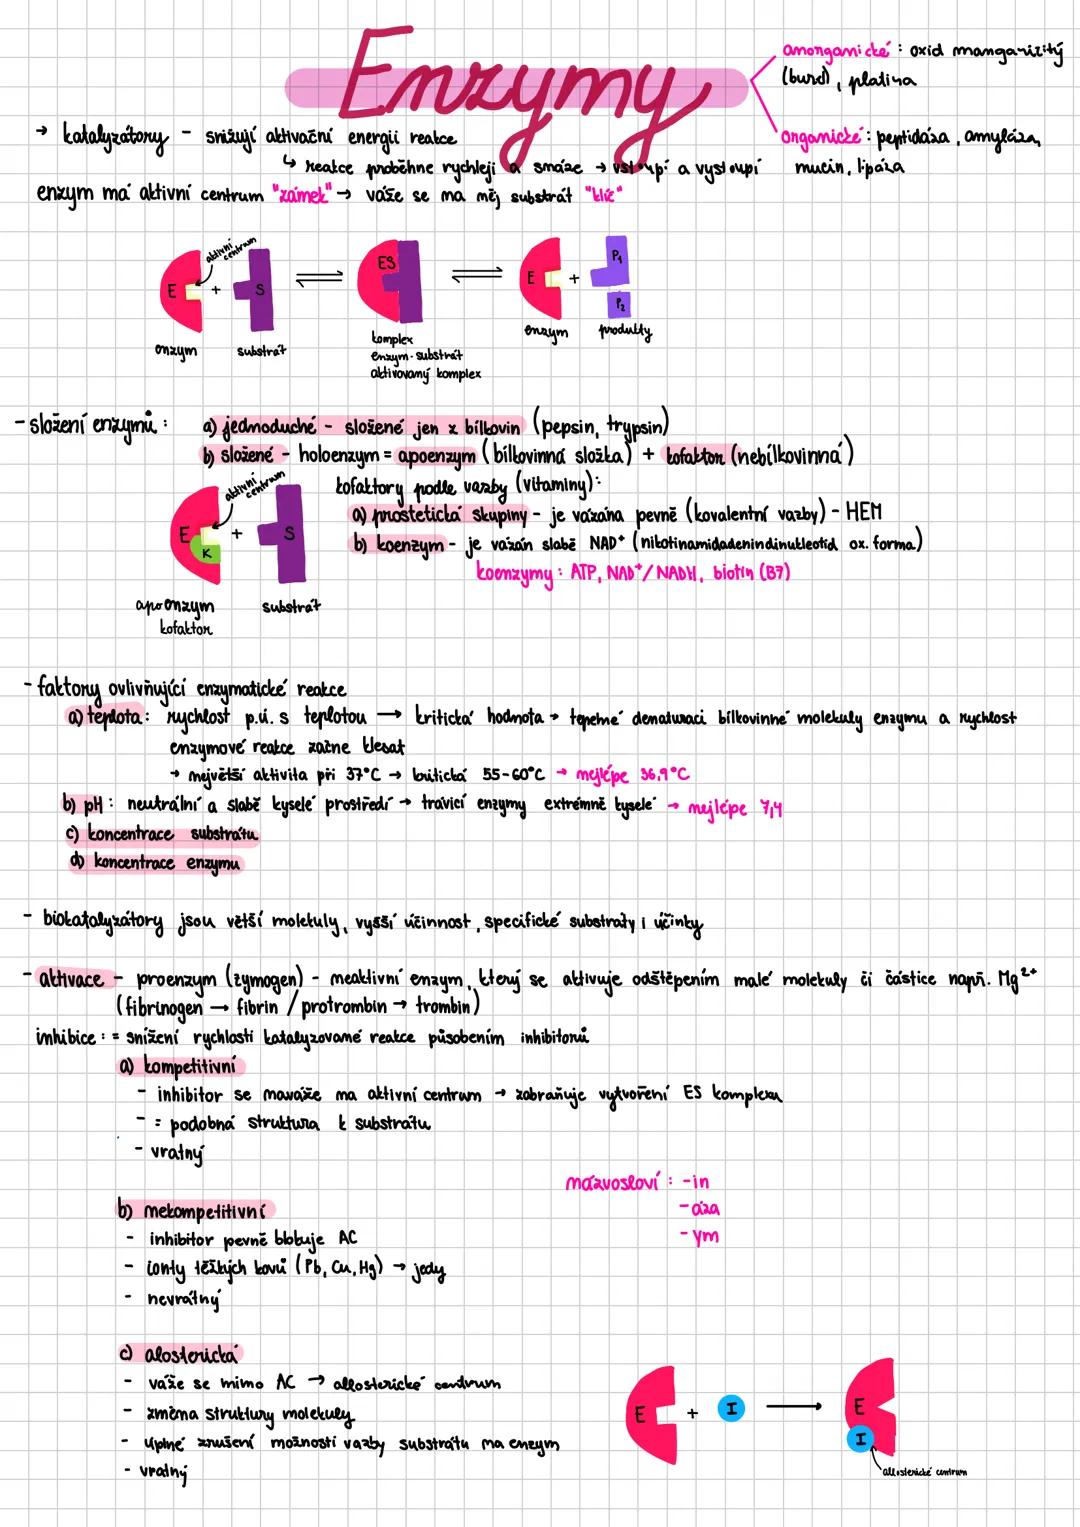 Enzymy
anorganické : oxid manganičitý
(burel), platina
organické : peptidáza, amyláza,
mucin, lipáza
→ katalyzátory - snižují aktivační energii reakce
↳ reakce proběhne rychleji a snáze → vstoupí a vystoupí
enzym má aktivní centrum "zámek" → váže se na něj substrát "klíč"
aktivní
centrum
E + S ⇌ ES ⇌ E + P₁
P₂
enzym substrát
komplex
enzym-substrát
aktivovaný komplex
enzym produkty
- složení enzymů : a) jednoduché - složené jen z bílkovin (pepsin, trypsin)
b) složené - holoenzym = apoenzym (bílkovinná složka) + kofaktor (nebílkovinná)
kofaktory podle vazby (vitaminy):
a) prostetická skupiny - je vázána pevně (kovalentní vazby) - HEM
b) koenzym - je vázán slabě NAD⁺ (nikotinamidadenindinukleotid ox. forma)
koenzymy : ATP, NAD⁺/NADH, biotin (B7)
aktivní
centrum
E K + S
apoenzym substrát
kofaktor
- faktory ovlivňující enzymatické reakce
a) teplota : rychlost p.ú. s teplotou → kritická hodnota → tepelné denaturaci bílkovinné molekuly enzymu a rychlost
enzymové reakce začne klesat
→ největší aktivita při 37°C → kritická 55-60°C → nejlépe 36,9°C
b) pH : neutrální a slabě kyselé prostředí → trávicí enzymy extrémně kyselé → nejlépe 7,4
c) koncentrace substrátu
d) koncentrace enzymu
- biokatalyzátory jsou větší molekuly, vyšší účinnost, specifické substráty i účinky
- aktivace - proenzym (zymogen) - neaktivní enzym, který se aktivuje odštěpením malé molekuly či částice např. Mg²⁺
(fibrinogen → fibrin / protrombin → trombin)
inhibice : = snížení rychlosti katalyzované reakce působením inhibitorů
a) kompetitivní
- inhibitor se naváže na aktivní centrum → zabraňuje vytvoření ES komplexu
- = podobná struktura k substrátu
- vratný
názvosloví : -in
-áza
-ym
b) nekompetitivní
- inhibitor pevně blokuje AC
- ionty těžkých kovů (Pb, Cu, Hg) → jedy
- nevratný
c) alosterická
- váže se mimo AC → allosterické centrum
- změna struktury molekuly
- úplné zrušení možnosti vazby substrátu na enzym
- vratný
E + I → E I
allosterické centrum